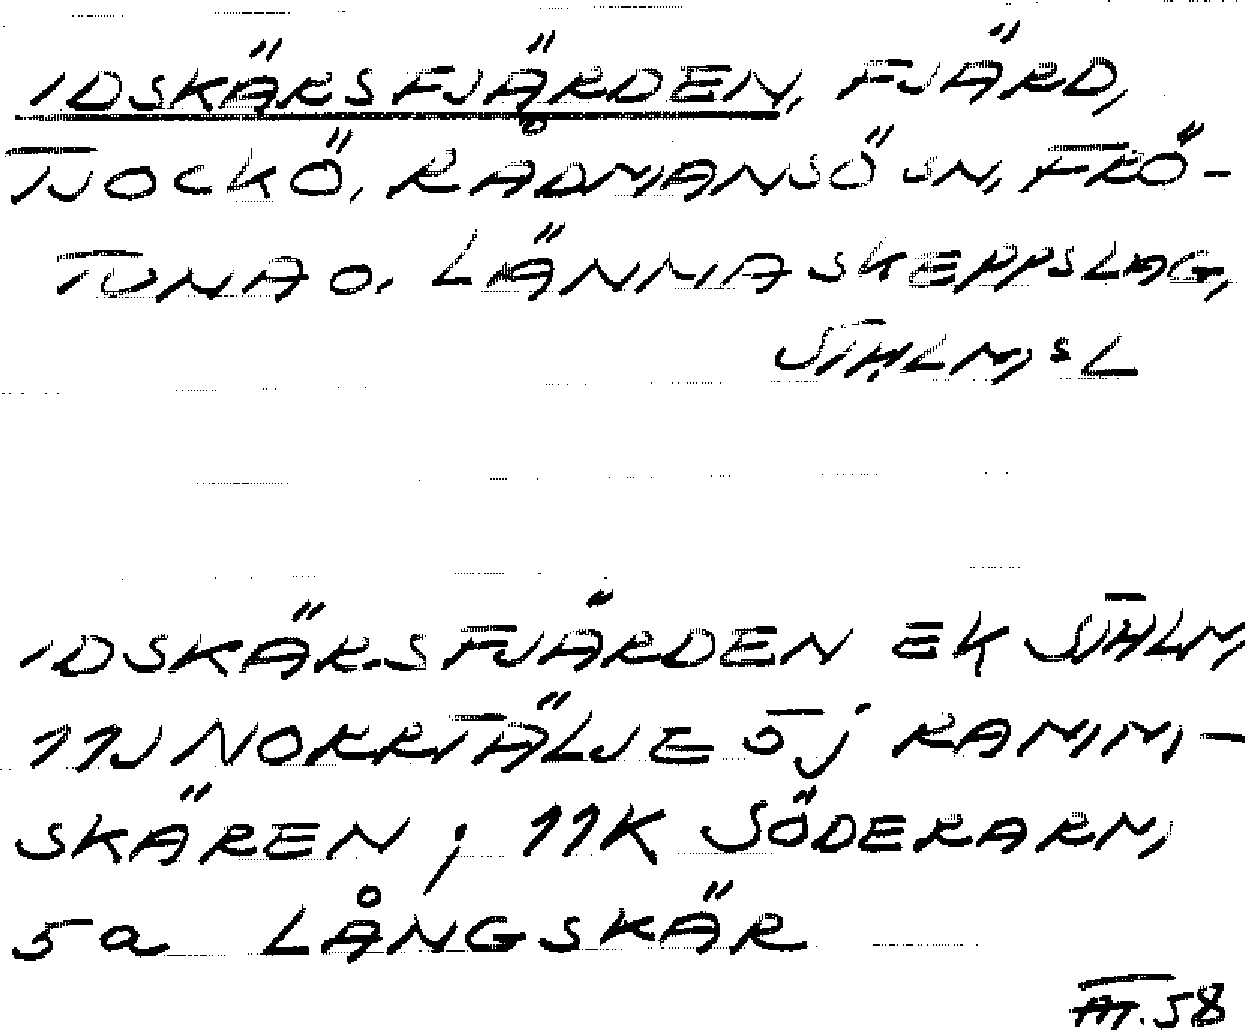 IDSKÄRSFJÄRDEN, FJÄRD,
TJOCKÖ, RÅDMANSÖ SN, FRÖ-
TUNA O. LÄNNA SKEPPSLAG,
STHLM,S L
IDSKÄRSFJÄRDEN EK STHLM
11J NORRTÄLJE 5j RAMM-
SKÄREN; 11K SÖDERARM,
5a LÅNGSKÄR
58